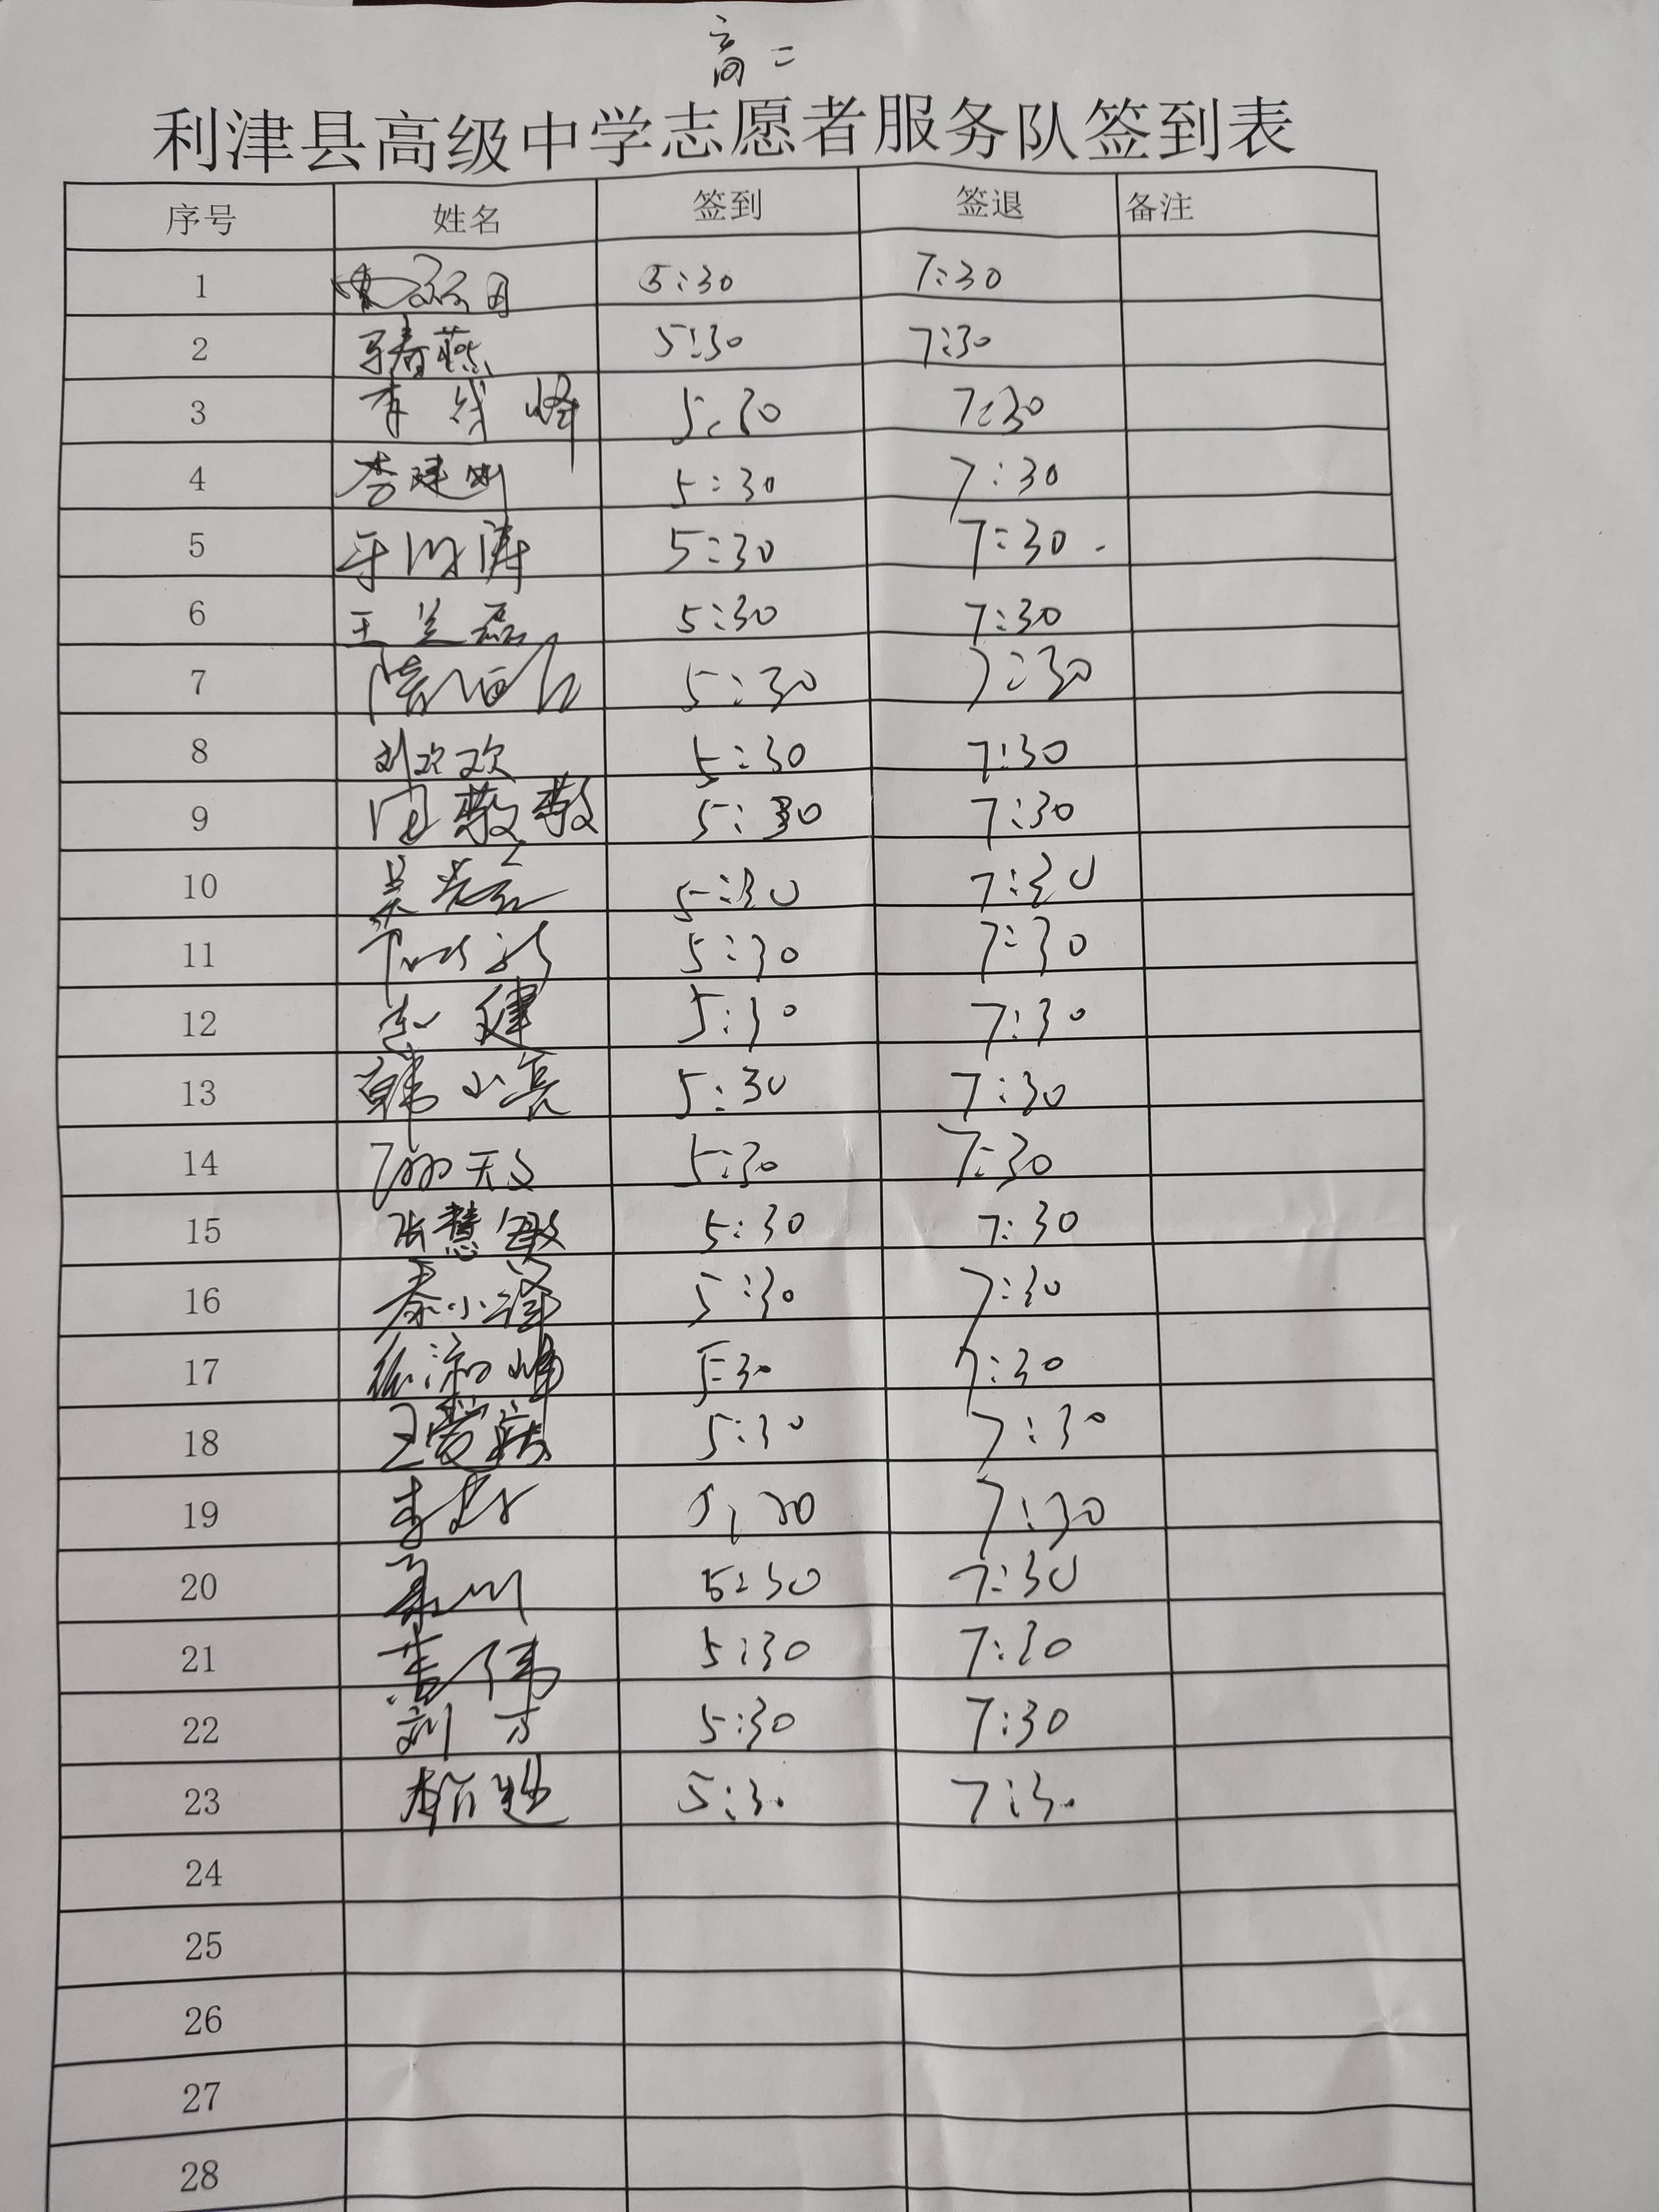 高二
利津县高级中学志愿者服务队签到表
序号 姓名 签到 签退 备注
1 5:30 7:30
2 马春燕 5:30 7:30
3 5:30 7:30
4 李建刚 5:30 7:30
5 5:30 7:30
6 王兰磊 5:30 7:30
7 5:30 7:30
8 刘欢欢 5:30 7:30
9 田敬敬 5:30 7:30
10 5:30 7:30
11 5:30 7:30
12 健 5:30 7:30
13 韩小亮 5:30 7:30
14 5:30 7:30
15 张慧敏 5:30 7:30
16 秦小泽 5:30 7:30
17 5:30 7:30
18 王爱 5:30 7:30
19 5:30 7:30
20 5:30 7:30
21 5:30 7:30
22 刘方 5:30 7:30
23 5:30 7:30
24
25
26
27
28